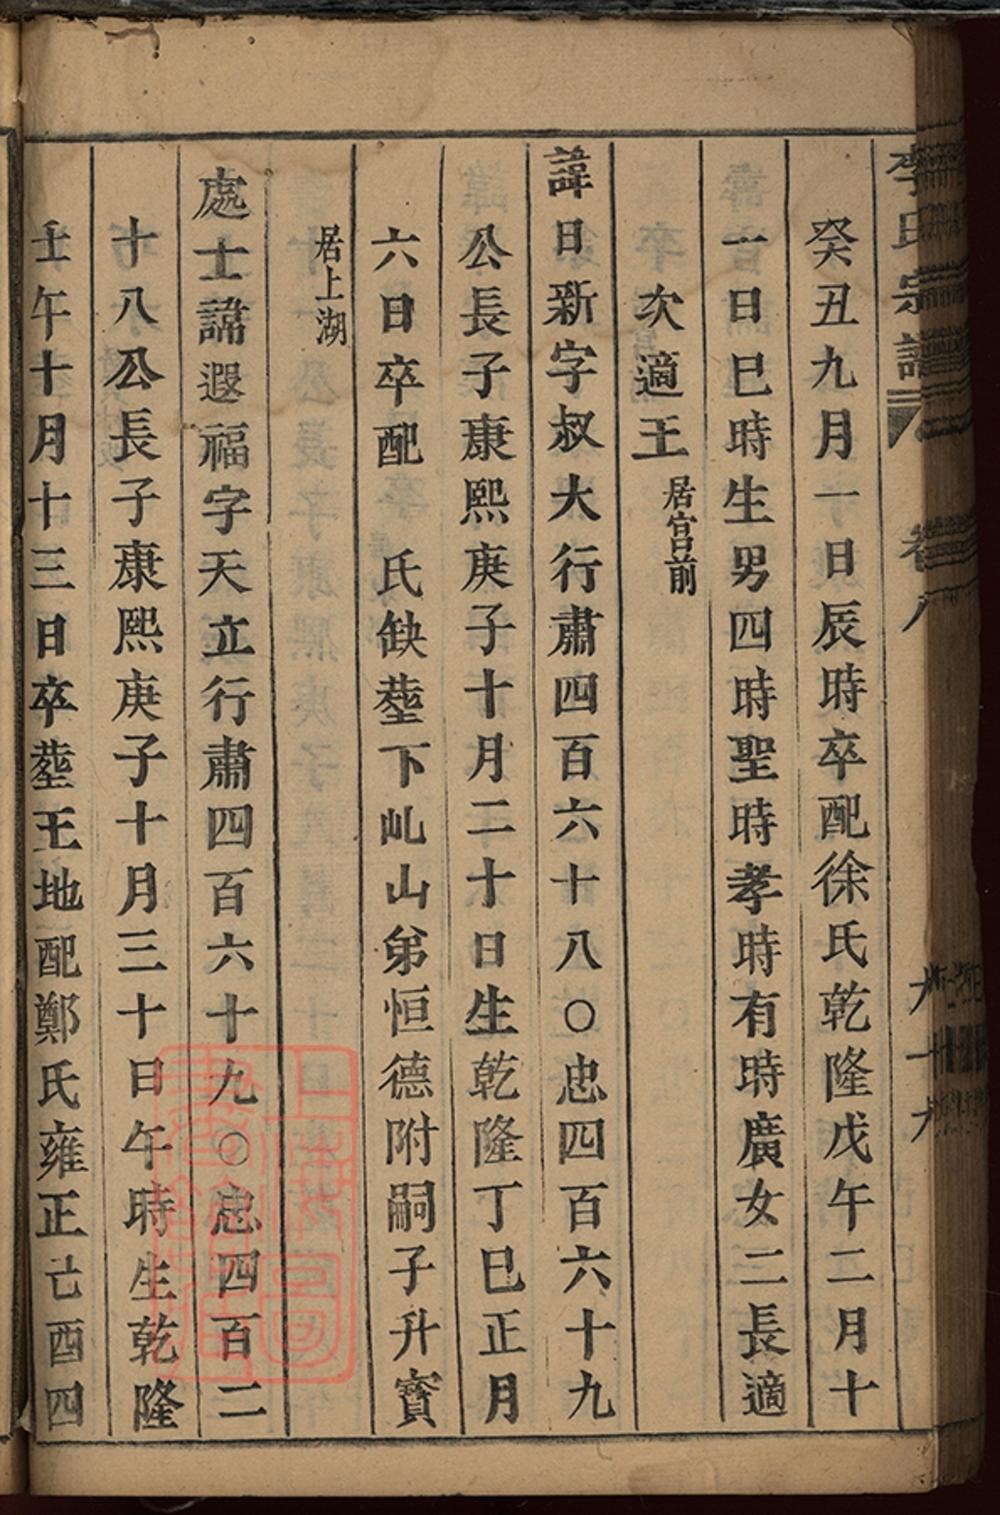 李氏宗譜 卷八
癸丑九月一日辰時卒配徐氏乾隆戊午二月十
一日巳時生男四時聖時孝時有時廣女二長適
次適王居宫前
諱日新字叔大行肅四百六十八○忠四百六十九
公長子康熙庚子十月二十日生乾隆丁巳正月
六日卒配 氏缺塟下乢山弟恒德附嗣子升寳
居上湖
處士諱遐福字天立行肅四百六十九○忠四百二
十八公長子康熙庚子十月三十日午時生乾隆
壬午十月十三日卒塟王地配鄭氏雍正亡酉四